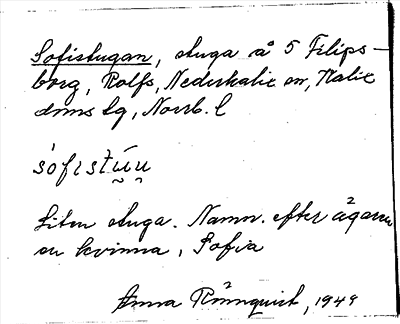 Sofistugan, stuga å 5 Filips-
borg, Rolfs, Nederkalix sn, Kalix
dms lg, Norrb. l
sofistu̇u
Liten stuga. Namn. efter ägaren
en kvinna, Sofia
Anna Rönnquist, 1949